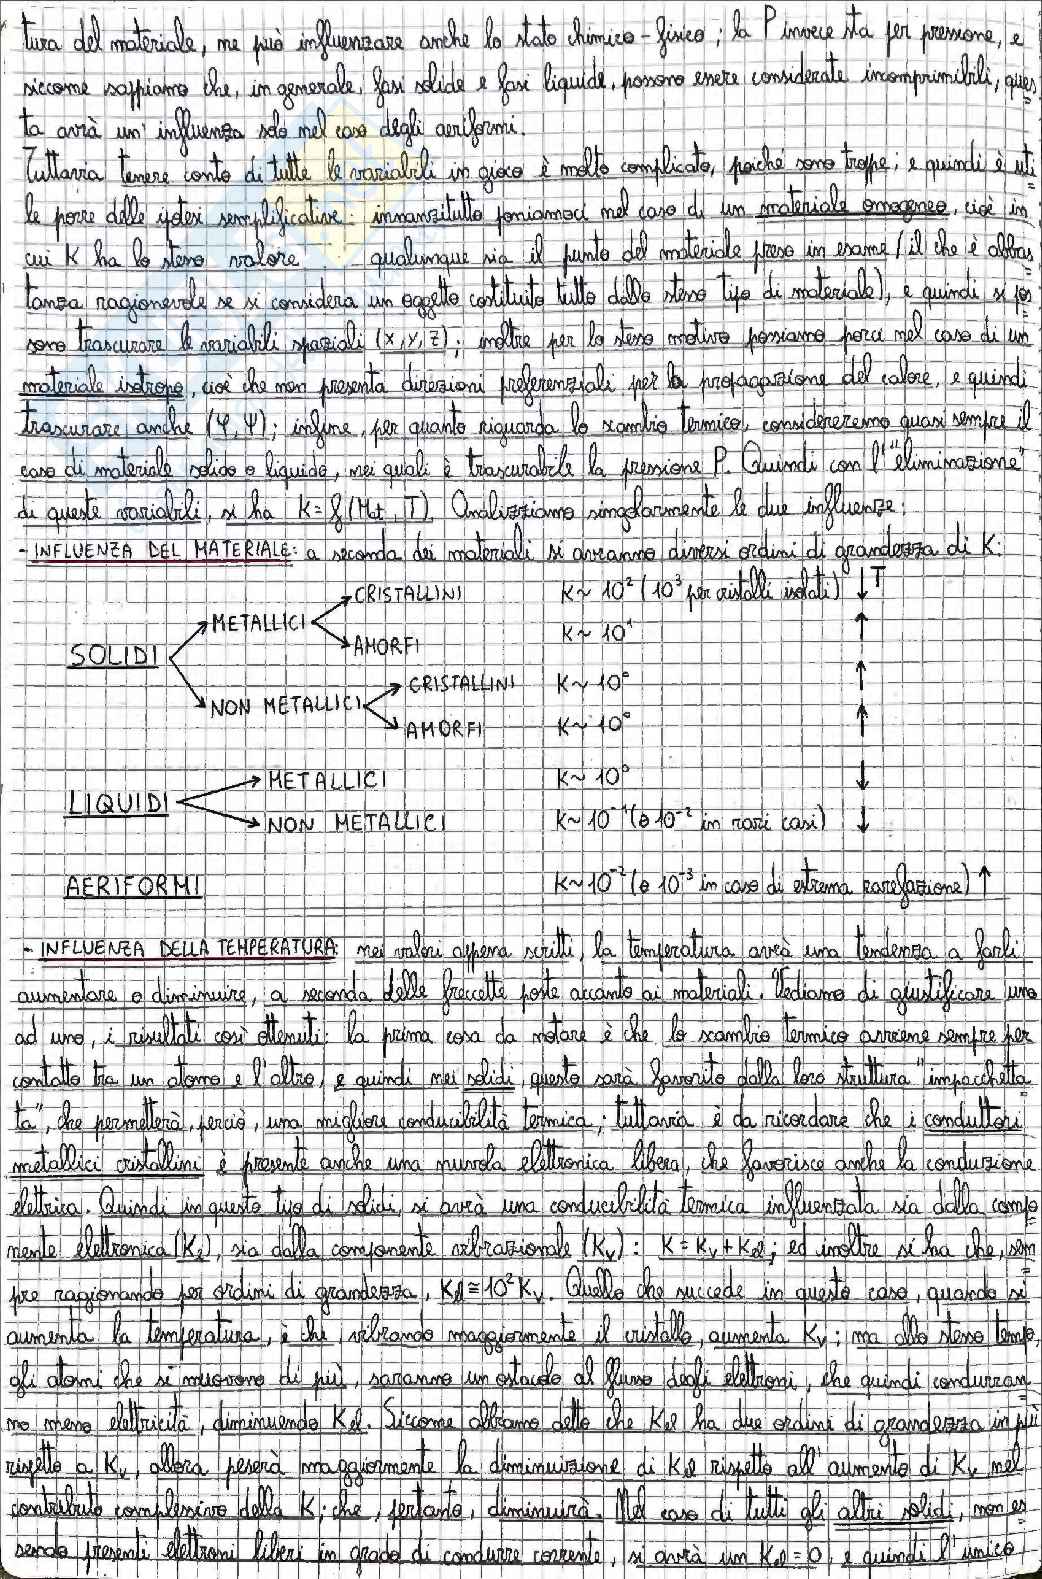 tura del materiale, me può influenzare anche lo stato chimico-fisico; la P invece sta per pressione, e
siccome sappiamo che, in generale, fasi solide e fasi liquide, possono essere considerate incomprimibili, ques
ta avrà un' influenza solo nel caso degli aeriformi.
Tuttavia tenere conto di tutte le variabili in gioco è molto complicato, poiché sono troppe; e quindi è uti
le porre delle ipotesi semplificative: innanzitutto poniamoci nel caso di un materiale omogeneo, cioè in
cui K ha lo stesso valore qualunque sia il punto del materiale preso in esame (il che è abbas
tanza ragionevole se si considera un oggetto costituito tutto dallo stesso tipo di materiale), e quindi si pos
sono trascurare le variabili spaziali (x,y,z); inoltre per lo stesso motivo possiamo porci nel caso di un
materiale isotropo, cioè che non presenta direzioni preferenziali per la propagazione del calore, e quindi
trascurare anche (φ,ψ); infine, per quanto riguarda lo scambio termico, considereremo quasi sempre il
caso di materiale solido o liquido, nei quali è trascurabile la pressione P. Quindi con l'"eliminazione"
di queste variabili, si ha K=f(Mat, T). Analizziamo singolarmente le due influenze:
- INFLUENZA DEL MATERIALE: a seconda dei materiali si avranno diversi ordini di grandezza di K:
CRISTALLINI K~10² (10³ per cristalli isolati) ↓T
METALLICI
AMORFI K~10¹ ↑
SOLIDI
CRISTALLINI K~10⁰ ↑
NON METALLICI
AMORFI K~10⁰ ↑
METALLICI K~10⁰ ↓
LIQUIDI
NON METALLICI K~10⁻¹ (o 10⁻² in rari casi) ↓
AERIFORMI K~10⁻² (o 10⁻³ in caso di estrema rarefazione) ↑
- INFLUENZA DELLA TEMPERATURA: nei valori appena scritti, la temperatura avrà una tendenza a farli
aumentare o diminuire, a seconda delle freccette poste accanto ai materiali. Vediamo di giustificare uno
ad uno, i risultati così ottenuti: la prima cosa da notare è che lo scambio termico avviene sempre per
contatto tra un atomo e l'altro, e quindi nei solidi, questo sarà favorito dalla loro struttura "impacchetta
ta", che permetterà, perciò, una migliore conducibilità termica; tuttavia è da ricordare che i conduttori
metallici cristallini è presente anche una nuvola elettronica libera, che favorisce anche la conduzione
elettrica. Quindi in questo tipo di solidi, si avrà una conducibilità termica influenzata sia dalla compo
nente elettronica (Kel), sia dalla componente vibrazionale (Kv): K=Kv+Kel; ed inoltre si ha che, sem
pre ragionando per ordini di grandezza, Kel≅10²Kv. Quello che succede in questo caso, quando si
aumenta la temperatura, è che, vibrando maggiormente il cristallo, aumenta Kv; ma allo stesso tempo,
gli atomi che si muovono di più, saranno un ostacolo al flusso degli elettroni, che quindi condurran
no meno elettricità, diminuendo Kel. Siccome abbiamo detto che Kel ha due ordini di grandezza in più
rispetto a Kv, allora peserà maggiormente la diminuizione di Kel rispetto all'aumento di Kv nel
contributo complessivo della K; che, pertanto, diminuirà. Nel caso di tutti gli altri solidi, non es
sendo presenti elettroni liberi in grado di condurre corrente, si avrà un Kel=0, e quindi l'unico